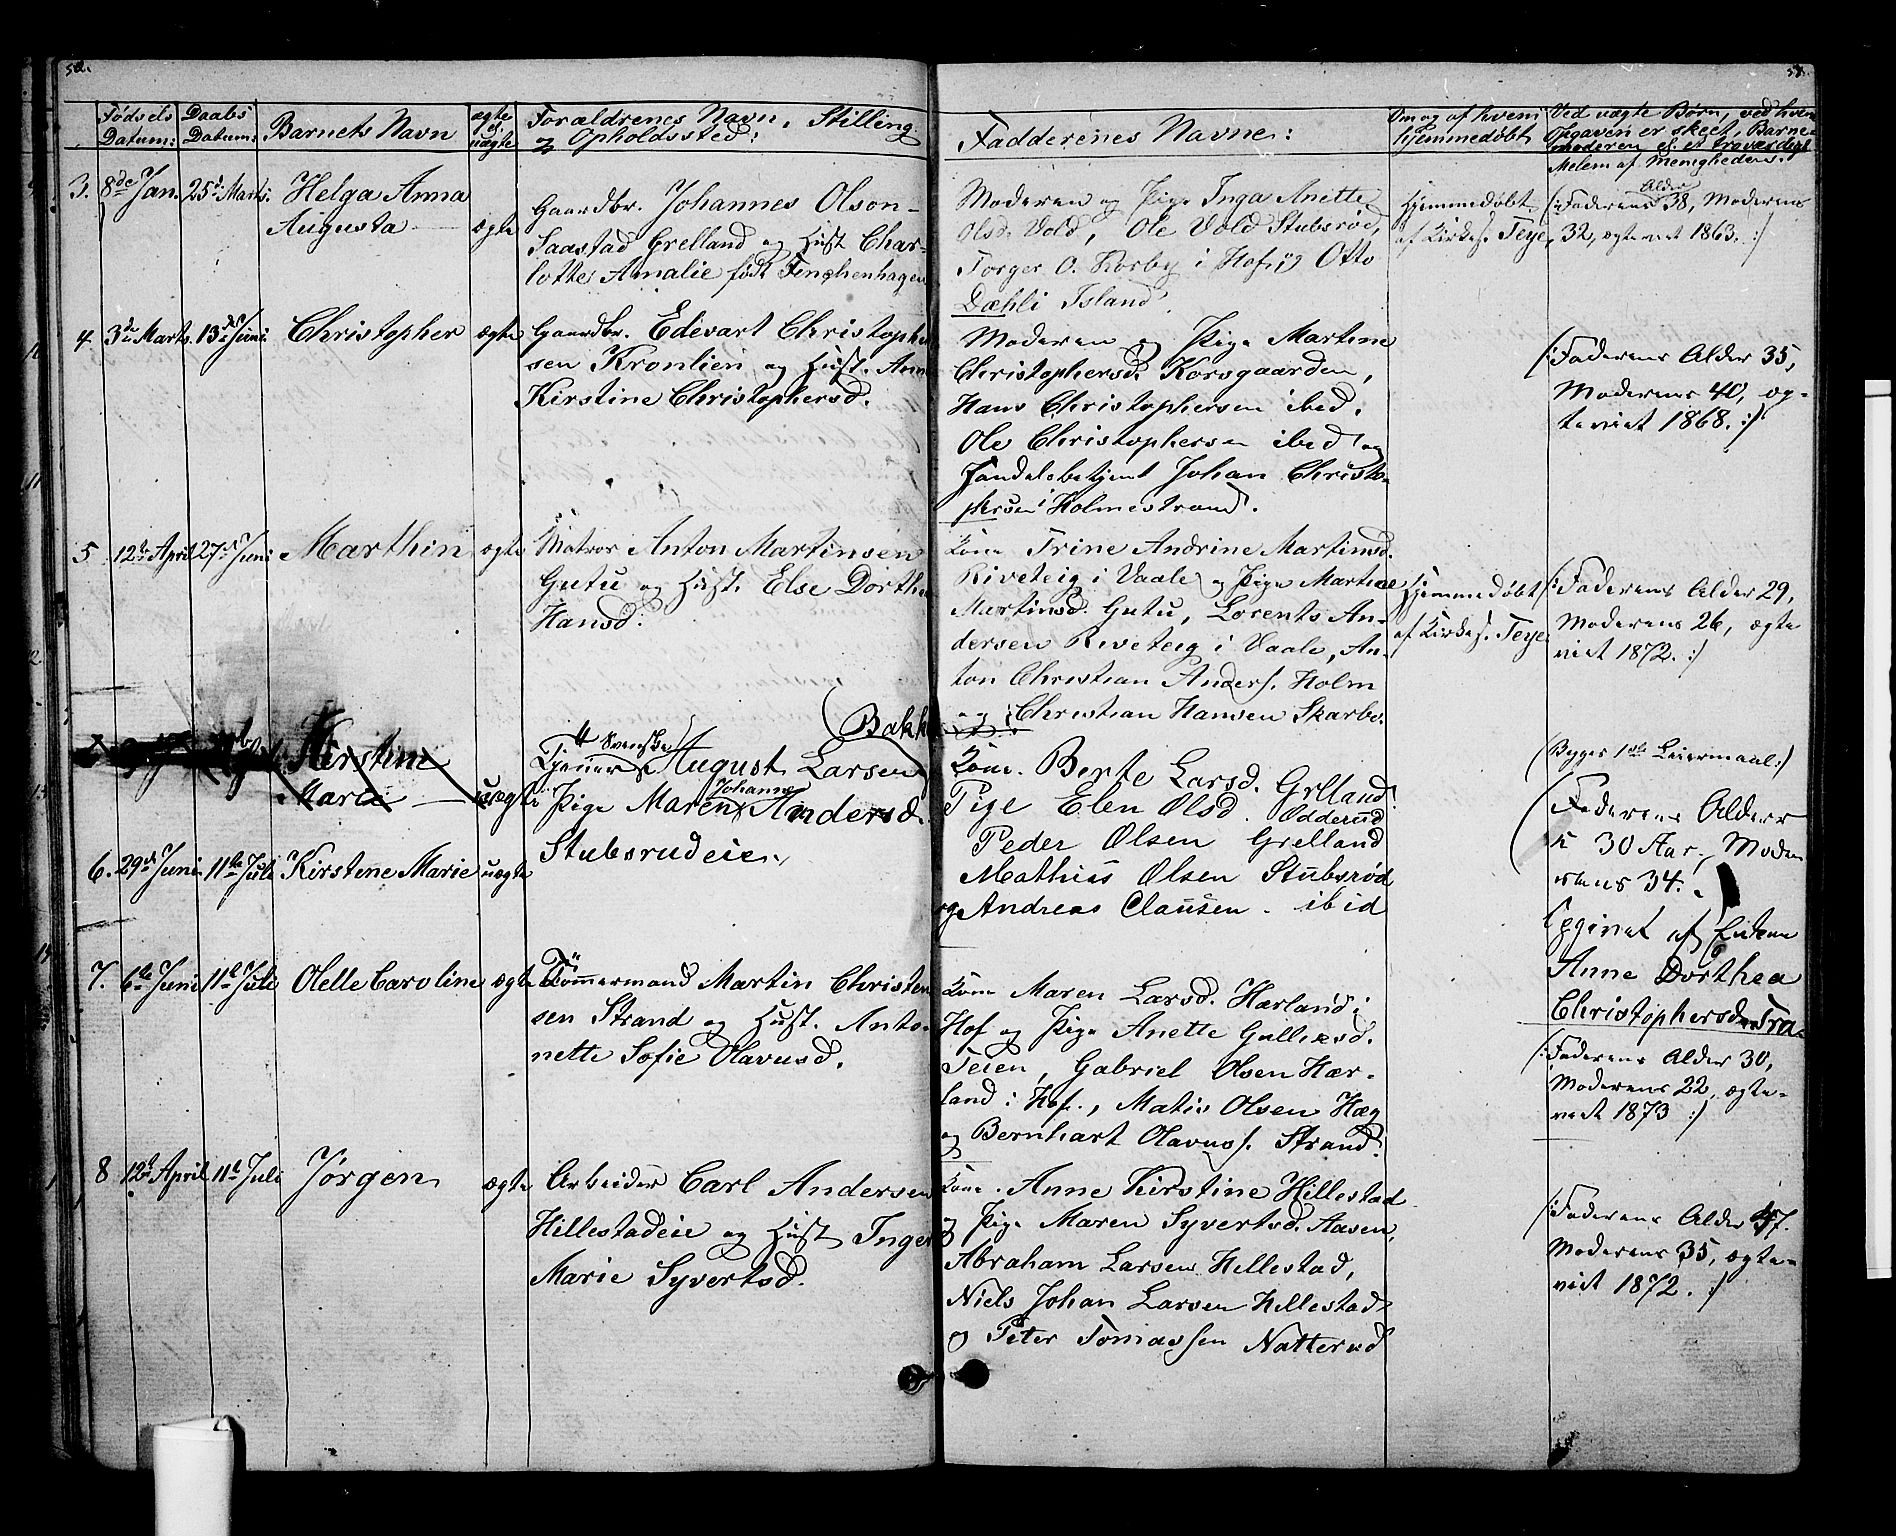 52.
Fødsels Datum:
Daabs Datum:
Barnets Navn
ægte el. uægte
Forældrenes Navn, Stilling
og Opholdssted:
3. 8de Jan. 25d Marts. Helga Anna
Augusta
ægte
Gaardbr. Johannes Olson
Saastad Grelland og Hust Char-
lotte Amalie født Finchenhagen
4 3de Marts. 13de Juni. Christopher ægte
Gaardbr. Edevart Christophe
sen Kronlien og Hust. Ann
Kirstine Christophersd.
5 12te April 27de Juni Marthin ægte
Matros Anton Martinsen
Gutu og Hust. Else Dorthe
Hansd.
Kirstine
Marie uægte
Svenske Bakke
Tjener August Larsen
Johanne
Pige Maren Andersd.
Stubsrudeie.
6. 29de Juni. 11te Juli Kirstene Marie uægte
7. 6te Juni 11te Juli Olelle Caroline ægte
Tømmermand Martin Christen
sen Strand og Hust. Anto-
nette Sofie Olavusd.
8 12te April 11te Juli Jørgen ægte
Arbeider Carl Andersen
Hillestadeie og Hust Inger
Marie Syvertsd.
53.
Fadderenes Navne:
Om og af hvem
hjemmedøbt
Ved uægte Børn, ved hvem
Opgaven er skeet, Barne-
moderen el. et troværdigt
Melem af Menigheden.
Moderen og Pige Inga Anette
Olsd. Vold, Ole Vold Stubsrød,
Torger O. Korsby i Hof, og Otto
Dæhli Island.
Hjemmedøbt
af Kirkes. Teye,
(:Faderens Alder 38, Moderens
32, ægteviet 1863. :)
Moderen og Pige Martine
Christophersd. Korsgaarden,
Hans Christophersen ibed.
Ole Christophersen ibed og
Handelsbetjent Johan Christo-
phersen i Holmestrand.
(:Faderens Alder 35,
Moderens 40, æg-
teviet 1868. :)
Kone Trine Andrine Martinsd.
Riveteig i Vaale og Pige Martine
Martinsd. Gutu, Lorents An-
dersen Riveteig i Vaale, An-
ton Christian Anders. Holm
og Christian Hansen Skarbo.
Hjemmedøbt
af Kirkes. Teye.
(:Faderens Alder 29,
Moderens 26, ægte
viet 1872. :)
Kone. Berte Larsd. Grelland.
Pige Elen Olsd. Odderud
Peder Olsen Grelland
Mathias Olsen Stubsrød
og Andreas Clausen. ibid
(Byges 1ste Leiermaal:)
(Faderens Alder
30 Aar, Mode
rens 34.
Opgivet af Enken
Anne Dorthea
Christophersd.
Kone Maren Larsd. Hærland i
Hof og Pige Anette Gulliksd.
Teien, Gabriel Olsen Hær-
land i Hof., Matis Olsen Hæg
og Bernhart Olavuss. Strand.
(:Faderens Alder 30,
Moderens 22, ægte-
viet 1873 :)
Kone. Anne Kirstine Hillestad
og Pige Maren Syvertsd. Aasen,
Abraham Larsen Hillestad,
Niels Johan Larsen Hillestad
og Peter Tomassen Natterud
(:Faderens Alder 47.
Moderens 35, ægte-
viet 1872. :)